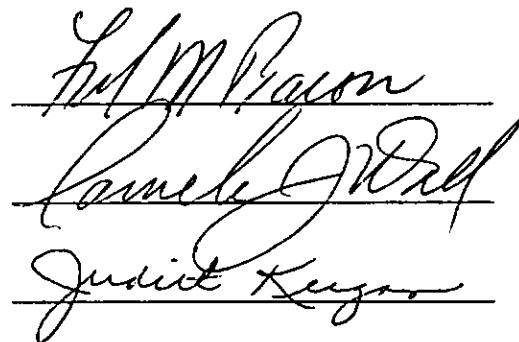 Fred M Bacon
Pamela J Wall
Judith Keegan